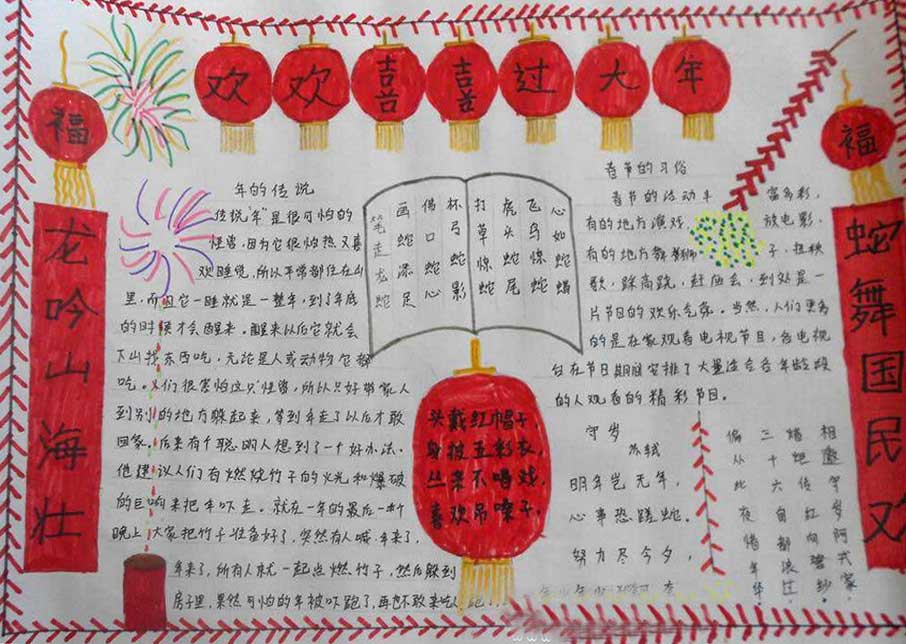 欢欢喜喜过大年
福
福
龙吟山海壮
蛇舞国民欢
年的传说
传说"年"是很可怕的
怪兽,因为它很怕热又喜
欢睡觉,所以平常都住在山
里,而且它一睡就是一整年,到了年底
的时候才会醒来。醒来以后它就会
下山找东西吃,无论是人或动物它都
吃。人们很害怕这只怪兽,所以只好带家人
到别的地方躲起来,等到年走了以后才敢
回家。后来有个聪明人想到了一个好办法,
他建议人们有燃烧竹子的火光和爆破
的巨响来把年吓走。就在一年的最后一个
晚上,大家把竹子准备好了,突然有人喊:年来了,
年来了,所有人就一起点燃竹子,然后躲到
房子里,果然可怕的年被吓跑了,再也不敢来吃人
画蛇添足
佛口蛇心
杯弓蛇影
打草惊蛇
虎头蛇尾
飞鸟惊蛇
心如蛇蝎
头戴红帽子,
身披五彩衣,
丛来不唱戏,
喜欢吊嗓子,
春节的习俗
春节的活动丰富多彩,
有的地方演戏放电影,
有的地方舞狮子,扭秧
歌,踩高跷,赶庙会,到处是一
片节日的欢乐气氛。当然,人们更多
的是在家观看电视节目,各电视
台在节日期间安排了大量适合各年龄段
的人观看的精彩节目。
守岁
苏轼
明年岂无年,
心事恐蹉蛇。
努力尽今夕,
相邀守岁阿戎家
蜡炬传红向碧纱
三十六旬都浪过
偏从此夜惜年华